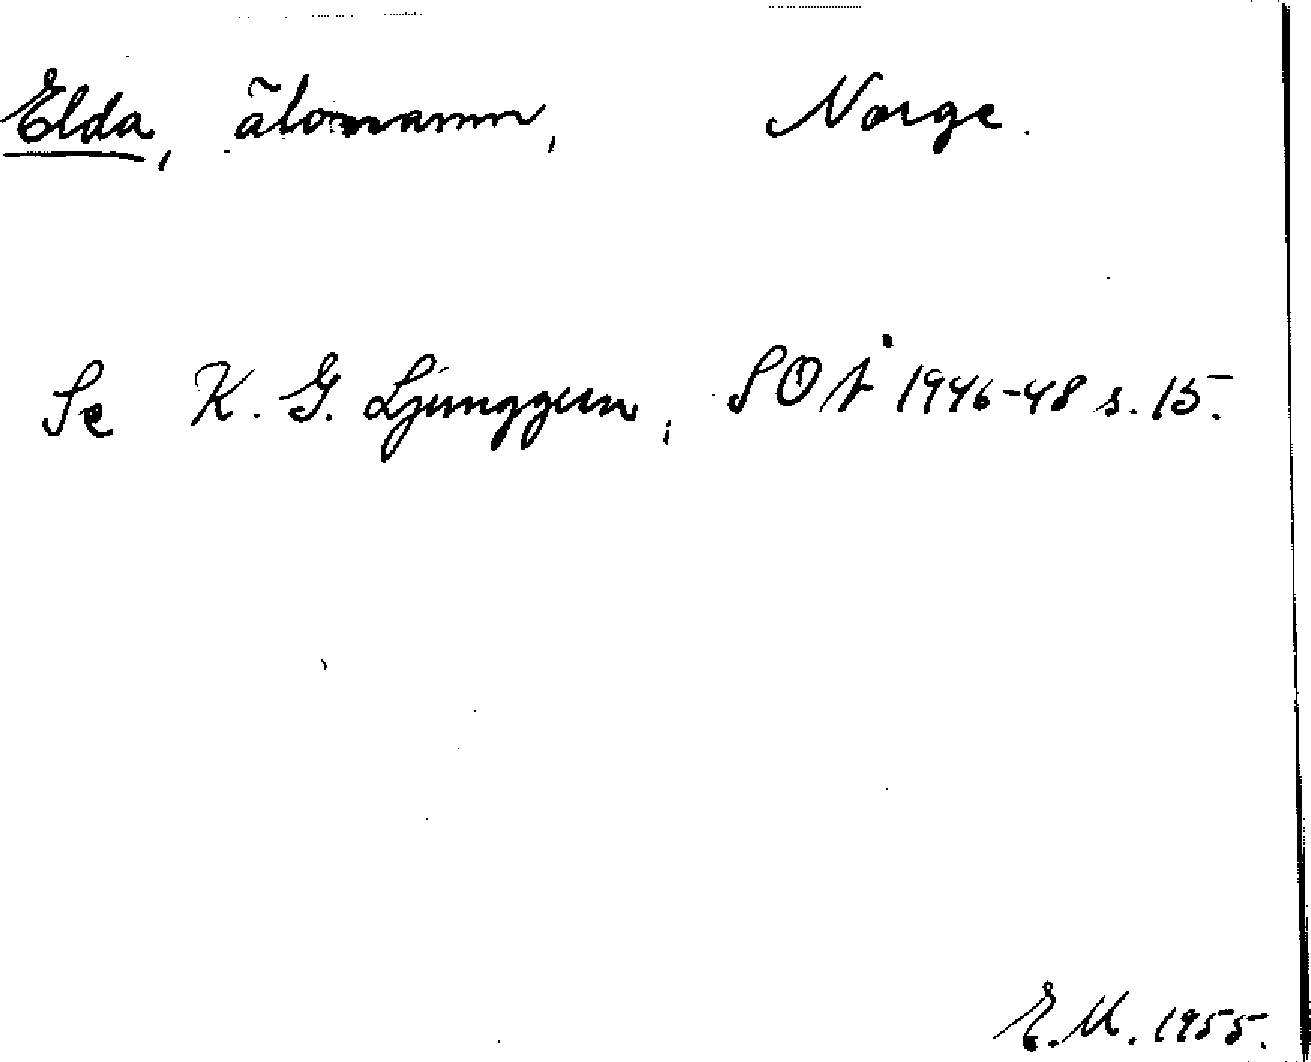 Elda, älvnamn, Norge.
Se K. G. Ljunggren, SOÅ 1946-48 s. 15.
E. M. 1955.